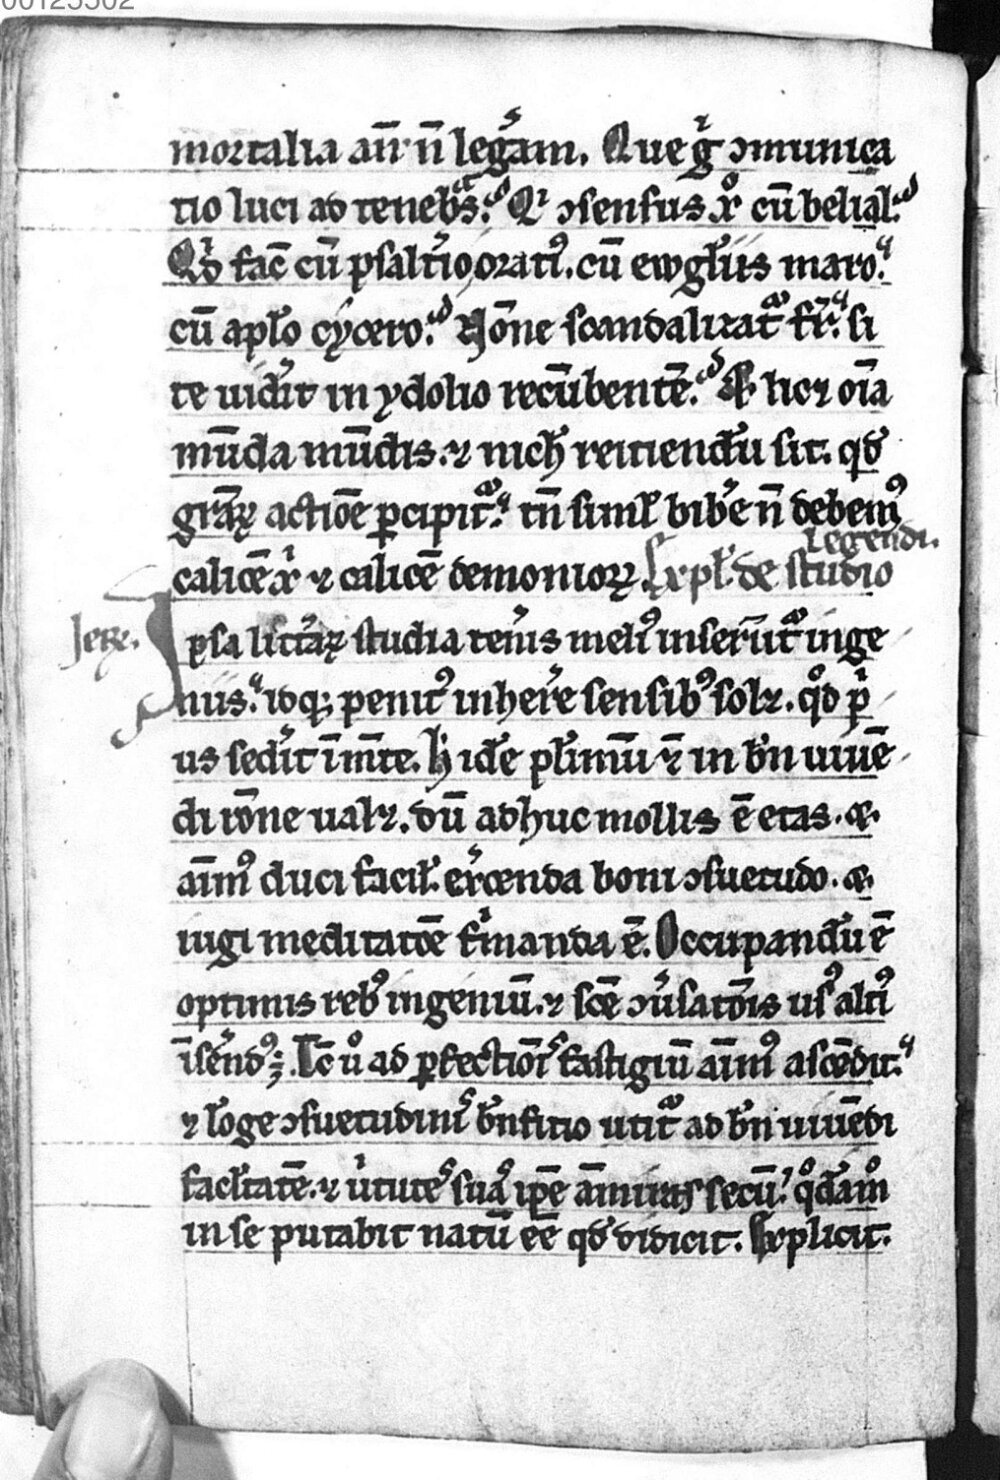 00125502
mortalia an̄ n̄ leg̃am. Que gͥ ɔmunica
tio luci ad tenebͣs. Qͥ ɔsensus xͦ cū belial.
Qͥd fac̄ cū psalt̾io orati᷒. cū ewgl̾iis maro.
cū apl̾o cycero. Nōne scandalizatᷓ fr̄. si
te uid̾it in ydolio recūbentē. & licꝫ oīa
mūda mūdis. ⁊ nich̾ reiciendū sit. qđ
gr̄aꝝ actiōe ꝑcipitᷓ. tn̄ simł bib̾e n̄ debem᷒
calicē xͥ ⁊ calicē demonioꝝ. Expl̾. de studio
legendi.
Jere. Ipsa litt̾aꝝ studia ten̾is meli᷒ inserūtᷓ inge
niis. idqꝫ penit᷒ inher̾e sensibꝰ solꝫ. qͦd pͥ
us sed̾it ī mt̄e. h̾ id̾e pl̾imū ⁊̄ in bn̄ uiuē
di iōne ualꝫ. dū adhuc mollis ē etas. &
aīm᷒ duci facil̾. ex̾cenda boni ɔsuetudo. &
iugi meditatōe fͥmanda ē. Occupandū ē
optimis rebꝰ ingeniū. ⁊ sc̄e ɔu̾satōis us᷒ alti᷒
īsen̾dꝰ; Tc̄ uͦ ad ꝑfectiōis fastigiū aīm᷒ ascēdit.
⁊ lōge ɔsuetudinis bn̄fitio utitᷓ ad bn̄ uiuēdi
facl̾tatē. ⁊ u̾tutēs suā ip̄e āmirās secū. qͦdāmͦ
in se putabit natū eē qđ didicit. Explicit.